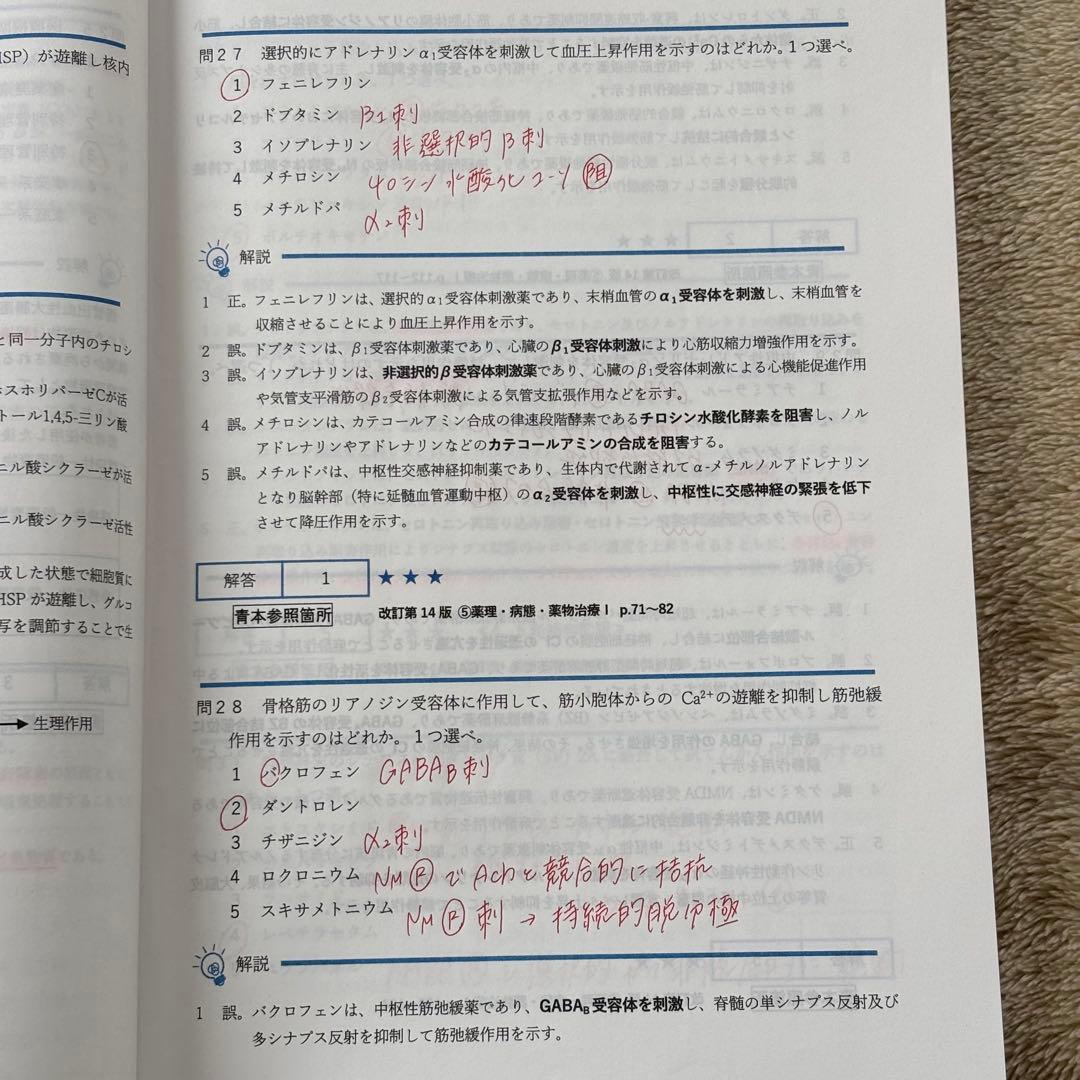 HSP）が遊離し核内
と同一分子内のチロシ
ホスホリパーゼCが活
トール1,4,5-三リン酸
ニル酸シクラーゼが活
ニル酸シクラーゼ活性
成した状態で細胞質に
HSP が遊離し、グルコ
写を調節することで生
→ 生理作用
問２７ 選択的にアドレナリンα₁受容体を刺激して血圧上昇作用を示すのはどれか。1つ選べ。
1 フェニレフリン
2 ドブタミン β1刺
3 イソプレナリン 非選択的β刺
4 メチロシン チロシン水酸化コーソ 阻
5 メチルドパ α₂刺
解説
1 正。フェニレフリンは、選択的α₁受容体刺激薬であり、末梢血管のα₁受容体を刺激し、末梢血管を
収縮させることにより血圧上昇作用を示す。
2 誤。ドブタミンは、β₁受容体刺激薬であり、心臓のβ₁受容体刺激により心筋収縮力増強作用を示す。
3 誤。イソプレナリンは、非選択的β受容体刺激薬であり、心臓のβ₁受容体刺激による心機能促進作用
や気管支平滑筋のβ₂受容体刺激による気管支拡張作用などを示す。
4 誤。メチロシンは、カテコールアミン合成の律速段階酵素であるチロシン水酸化酵素を阻害し、ノル
アドレナリンやアドレナリンなどのカテコールアミンの合成を阻害する。
5 誤。メチルドパは、中枢性交感神経抑制薬であり、生体内で代謝されてα-メチルノルアドレナリン
となり脳幹部（特に延髄血管運動中枢）のα₂受容体を刺激し、中枢性に交感神経の緊張を低下
させて降圧作用を示す。
解答 1 ★★★
青本参照箇所 改訂第14版 ⑤薬理・病態・薬物治療Ⅰ p.71～82
問２８ 骨格筋のリアノジン受容体に作用して、筋小胞体からの Ca²⁺の遊離を抑制し筋弛緩
作用を示すのはどれか。1つ選べ。
1 バクロフェン GABAB刺
2 ダントロレン
3 チザニジン α₂刺
4 ロクロニウム NM Ⓡ でAchと競合的に拮抗
5 スキサメトニウム NM Ⓡ 刺 → 持続的脱分極
解説
1 誤。バクロフェンは、中枢性筋弛緩薬であり、GABAB受容体を刺激し、脊髄の単シナプス反射及び
多シナプス反射を抑制して筋弛緩作用を示す。